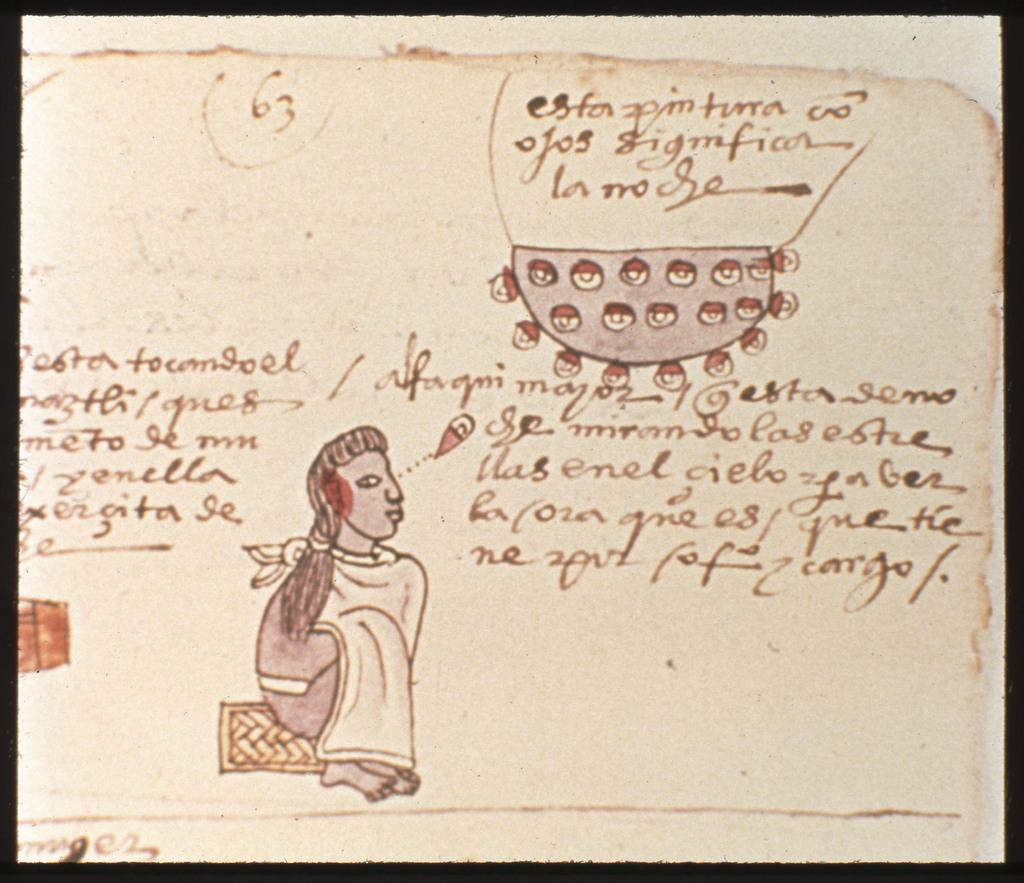 63
esta pintura cõ
ojos significa
la noche
esta tocando el
naztli / ques
mẽto de mu
/ y en ella
exerçita de
he
/ alfaqui mayor / q̃ esta de no
che mirando las estre
llas en el cielo para ver
la ora que es / que tie
ne por ofiº y cargo /.
muger